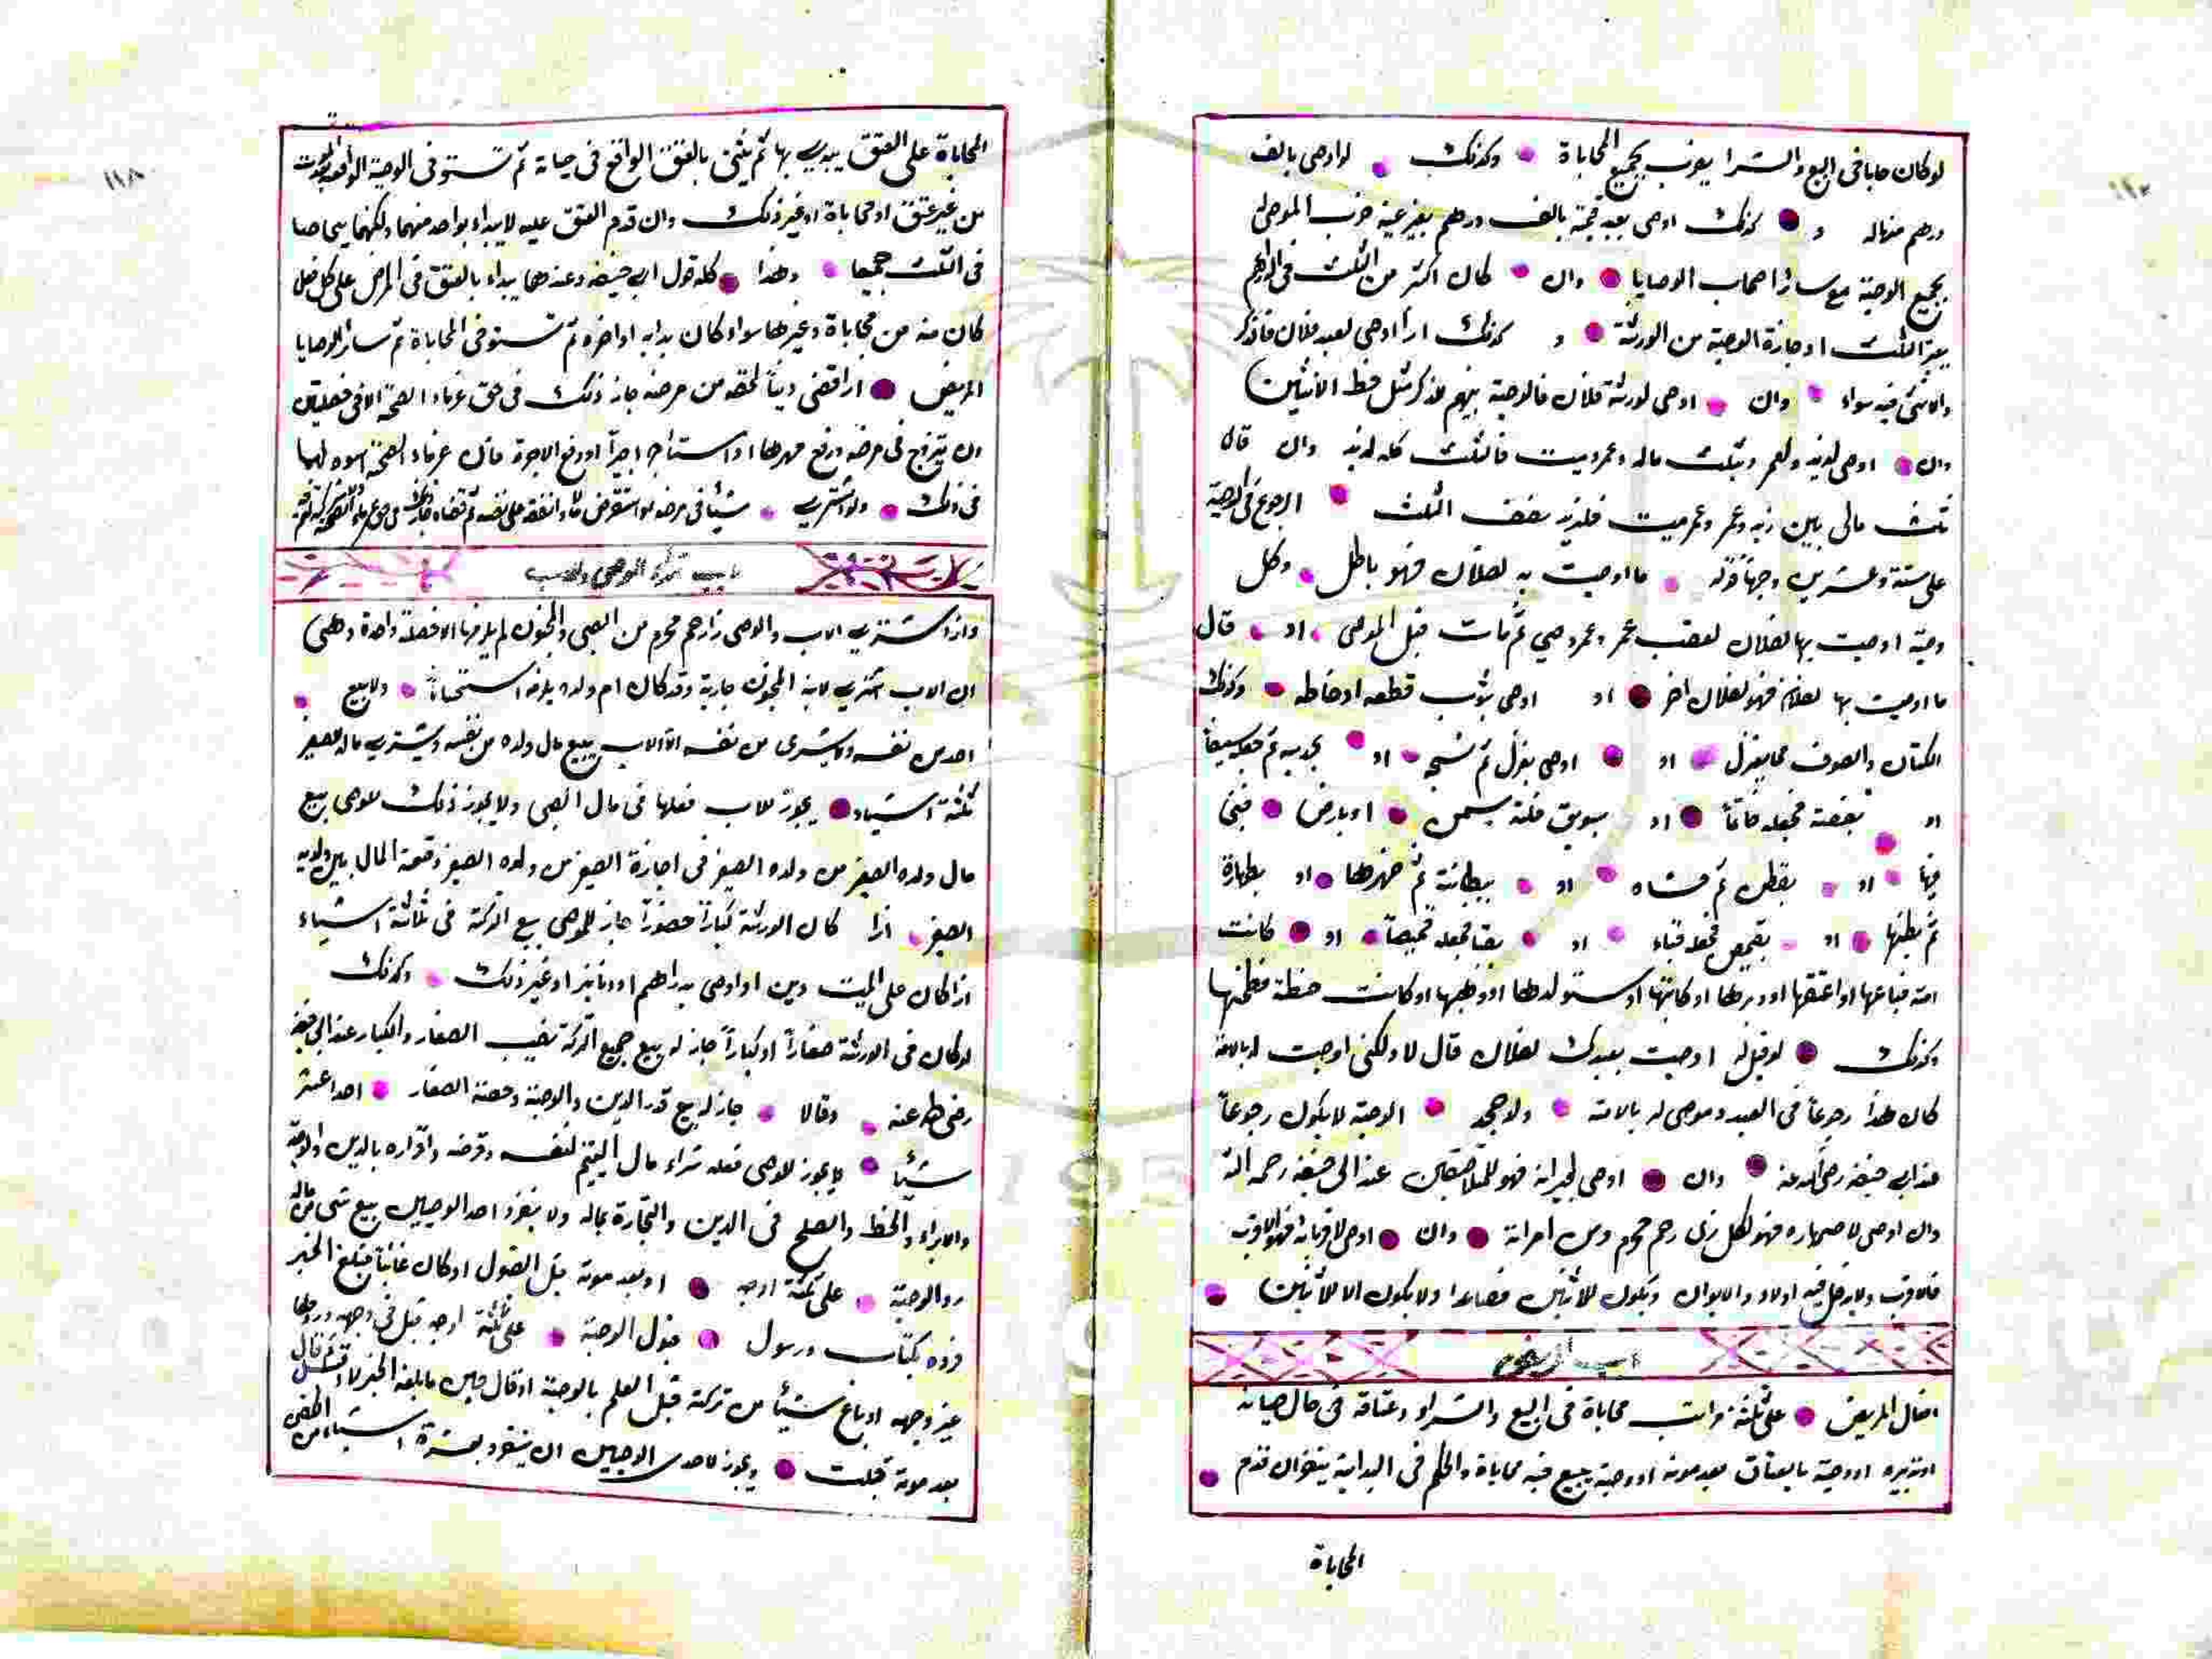 لو كان حابا فى البيع والشرا يضرب بجميع المحاباة وكذلك لو اوصى بالف
درهم منهاله و كذلك اوصى بعبد قيمته بالف درهم بغير عينه ضرب الموصى له
بجميع الوصية مع سائر اصحاب الوصايا وان كان اكثر من الثلث فى الدراهم
بغير الثلث اوجازة الوصية من الورثة و كذلك اذا اوصى لعبد فلان فالذكر
والانثى فيه سواء وان اوصى لورثة فلان فالوصية بينهم للذكر مثل حظ الانثيين
وان اوصى لزيد ولعمر وبثلث ماله وعمر وميت فالثلث كله لزيد وان قال
ثلث مالى بين زيد وعمر وعمر ميت فلزيد نصف الثلث الرجوع فى الوصية
على ستة وعشرين وجهاً قوله ما اوصيت به لفلان فهو باطل وكل
وصية اوصيت بها لفلان لعقب عمر وعمر وحي ثم مات قبل الموصى او قال
ما اوصيت بها لفلان فهو لفلان اخر او اوصى بثوب قطعه اوخاطه وكذلك
الكتان والصوف مما يغزل او اوصى بغزل ثم نسجه او بحديد ثم جعله سيفاً
او بفضة فجعله خاتماً او بسويق فلته بسمن او بارض فبنى
فيها او بقطن ثم حشاه او ببطانة ثم ظهرها او بظهارة
ثم بطنها او بقميص فجعله قباء او بقبا فجعله قميصاً او كانت
امة فباعها او اعتقها او دبرها او كاتبها او استولدها او وطئها او كانت حنطة فطحنها
وكذلك لو قيل له اوصيت بعبدك لفلان قال لا ولكنى اوصيت له بالامة
كان هذا رجوعاً فى العبد وموصى له بالامة ولو جحد الوصية لا يكون رجوعاً
عند ابى حنيفة رضى الله عنه وان اوصى لجيرانه فهو للملاصقين عند ابى حنيفة رحمه الله
وان اوصى لاصهاره فهو لكل ذى رحم محرم من امراته وان اوصى لاقربائه فهو للاقرب
فالاقرب ولا يدخل فيه اولاد والابوان ويكون للاثنين فصاعدا ولا يكون الا للاثنين
باب
افعال المريض على ثلثة مراتب محاباة فى البيع والشراء وعتاقه فى حال حياته
او تدبيره او وصية بالعتاق بعد موته او وصية يبيع فيه محاباة والحكم فى البداية ينظر ان قدم
المحاباة
المحاباة على العتق يبدى بها ثم يثنى بالعتق الواقع فى حياته ثم تستوفى الوصية الواقعة
من غير عتق او محاباة او غير ذلك وان قدم العتق عليه لا يبداء بواحد منهما ولكنهما يتحاصا
فى الثلث جميعا وهذا كله قول ابى حنيفه وعندهما يبداء بالعتق فى المرض على كل
كان منه من محاباة وغيرها سواء كان بدايه او اخره ثم تستوفى المحاباة ثم سائر الوصايا
المريض اذا قضى ديناً لحقه من مرضه جاز ذلك فى حق غرماء الصحة الا فى فصلين
ان يتزوج فى مرضه ودفع مهرها او استأجر اجيراً او دفع الاجرة فان غرماء الصحة اسوه لهما
فى ذلك ولو اشترى شيئاً فى مرضه
باب تركة الوصى والاب
واذا اشترى الاب والوصى ذا رحم محرم من الصبى والمجنون لم يلزمها الا فصلة واحدة وهى
ان الاب اشترى لابنه المجنون جارية وقد كان ام ولده يلزمه استحساناً ولا يبيع
احد من نفسه ولا يشترى من نفسه الا الاب يبيع مال ولده من نفسه ويشترى ماله للصغير
ثلثة اشياء يجوز للاب فعلها فى مال الصبى ولا يجوز ذلك للوصى بيع
مال ولده الصغير من ولده الصغير فى اجازة الصغير من ولده الصغير وقسمة المال بين ولديه
الصغير اذا كان الورثة كباراً حضوراً جاز للوصى بيع التركة فى ثلاثة اشياء
اذا كان على الميت دين او اوصى بدراهم او دنانير او غير ذلك وكذلك
لو كان فى الورثة صغاراً او كباراً جاز له بيع جميع التركة نصيب الصغار والكبار عند ابى حنيفة
رضى الله عنه وقالا جاز له بيع قدر الدين والوصية وحصة الصغار احد عشر
شيئاً لا يجوز للوصى فعله شراء مال اليتيم لنفسه وقرضه واقراره بالدين والوصية
والابراء والحط والصلح فى الدين والتجارة بماله ولا ينفرد احد الوصيين بيع شى من ماله
رد الوصية على ثلثة اوجه او بعد موته قبل القبول او كان غائباً فبلغ الخبر
فرده بكتاب ورسول قبول الوصية على ثلثة اوجه قبل فى وجهه وردها
غير وجهه او باع شيئاً من تركته قبل العلم بالوصية او قال حين ما بلغه الخبر لا اقبل ثم قال
بعد موته قبلت ويجوز لاحدى الوصيين ان ينفرد بعشرة اشياء من